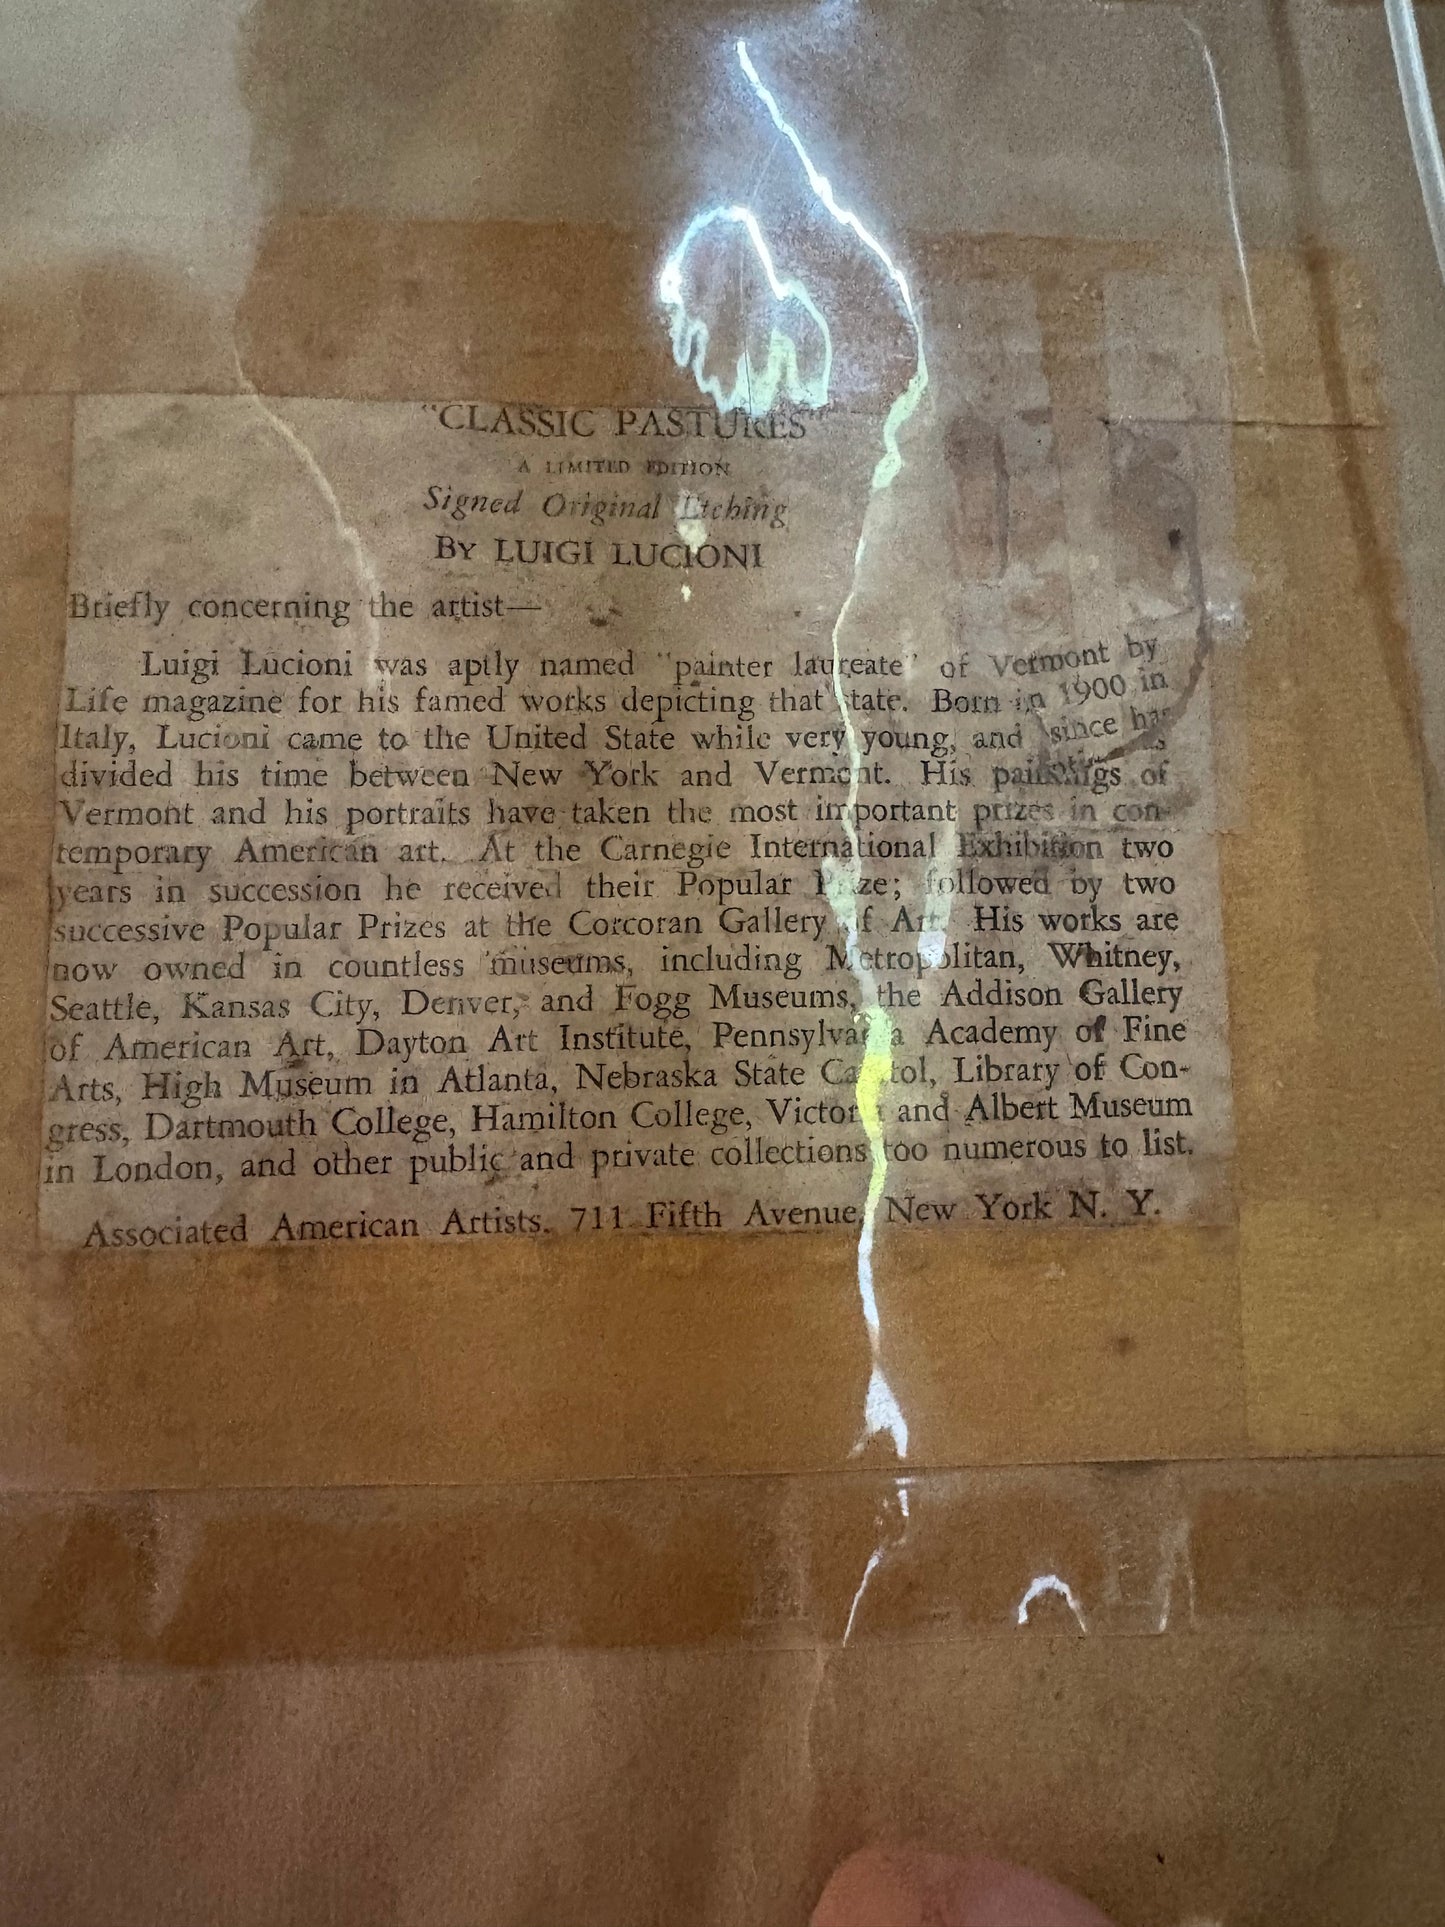 "CLASSIC PASTURES"
A LIMITED EDITION
Signed Original Etching
BY LUIGI LUCIONI
Briefly concerning the artist—
Luigi Lucioni was aptly named "painter laureate" of Vermont by
Life magazine for his famed works depicting that state. Born in 1900 in
Italy, Lucioni came to the United State while very young, and since has
divided his time between New York and Vermont. His paintings of
Vermont and his portraits have taken the most important prizes in con-
temporary American art. At the Carnegie International Exhibition two
years in succession he received their Popular Prize; followed by two
successive Popular Prizes at the Corcoran Gallery of Art. His works are
now owned in countless museums, including Metropolitan, Whitney,
Seattle, Kansas City, Denver, and Fogg Museums, the Addison Gallery
of American Art, Dayton Art Institute, Pennsylvania Academy of Fine
Arts, High Museum in Atlanta, Nebraska State Capitol, Library of Con-
gress, Dartmouth College, Hamilton College, Victoria and Albert Museum
in London, and other public and private collections too numerous to list.
Associated American Artists. 711 Fifth Avenue, New York N. Y.